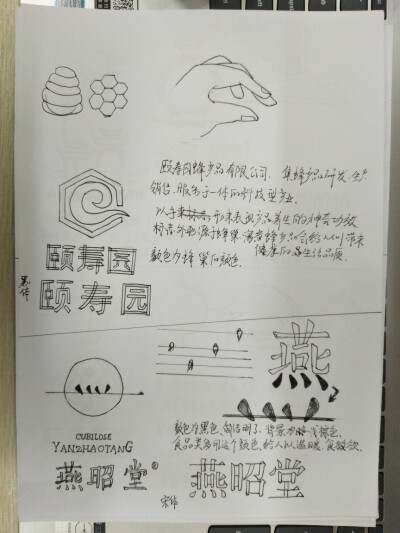 颐寿园蜂产品有限公司，集蜂产品研发、生产
销售、服务于一体的科技型产业。
以手来表现产品养生的神奇功效
标志外形源于蜂巢，寓意蜂产品会给人们带来
健康的养生生活品质。
颜色为蜂巢的颜色。
颐寿园
颐寿园
黑体
燕
CUBILOSE
YANZHAOTANG
燕昭堂®
颜色为黑色，简洁明了，背景为暗浅棕色，
食品类多用这个颜色，给人以温暖、食欲饮
燕昭堂
宋体